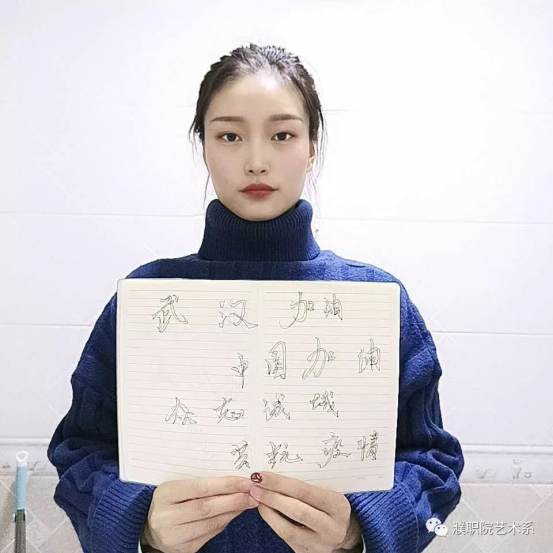 武汉加油
中国加油
众志诚城
共抗疫情
濮职院艺术系